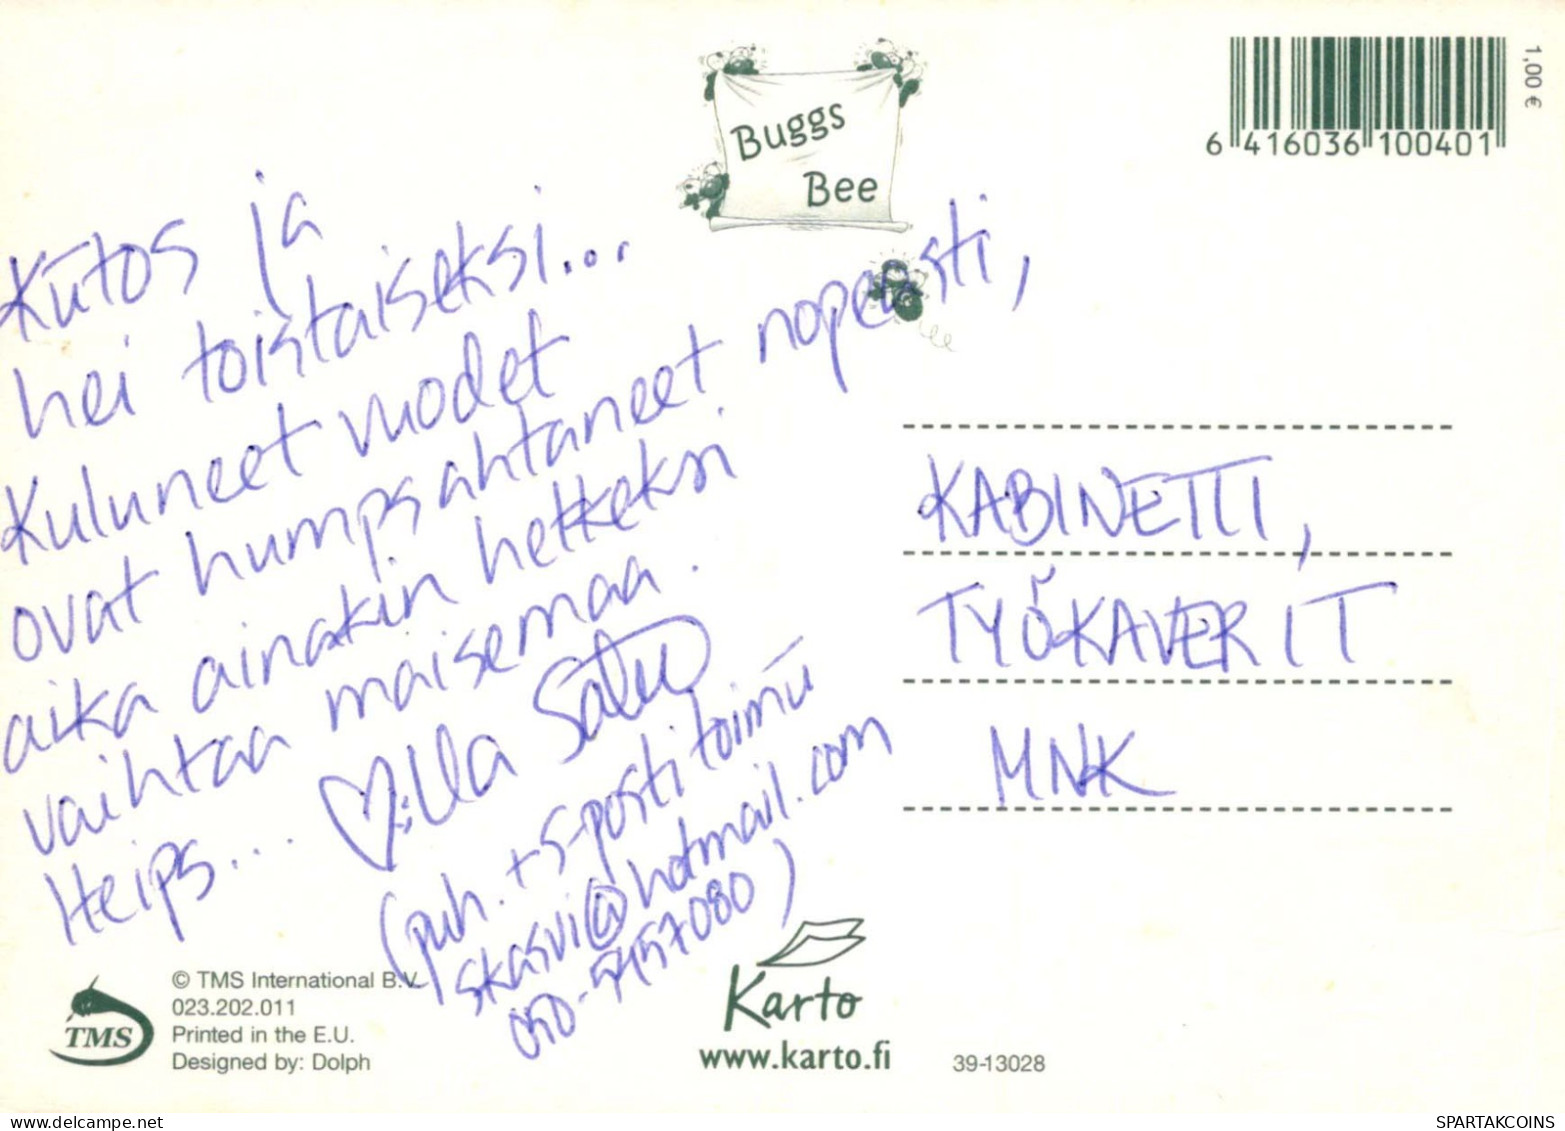 Buggs
Bee
1,00 €
6 416036 100401
Kiitos ja
hei toistaiseksi...
Kuluneet vuodet
ovat humpsahtaneet nopeasti,
aika ainakin hetkeksi
vaihtaa maisemaa.
Heips... ♡:lla Satu
(puh. + s-posti toimii
skasvi@hotmail.com
KABINETTI,
TYÖKAVERIT
MNK
© TMS International B.V.
023.202.011
Printed in the E.U.
Designed by: Dolph
TMS
Karto
www.karto.fi
39-13028
SPARTAKCOINS